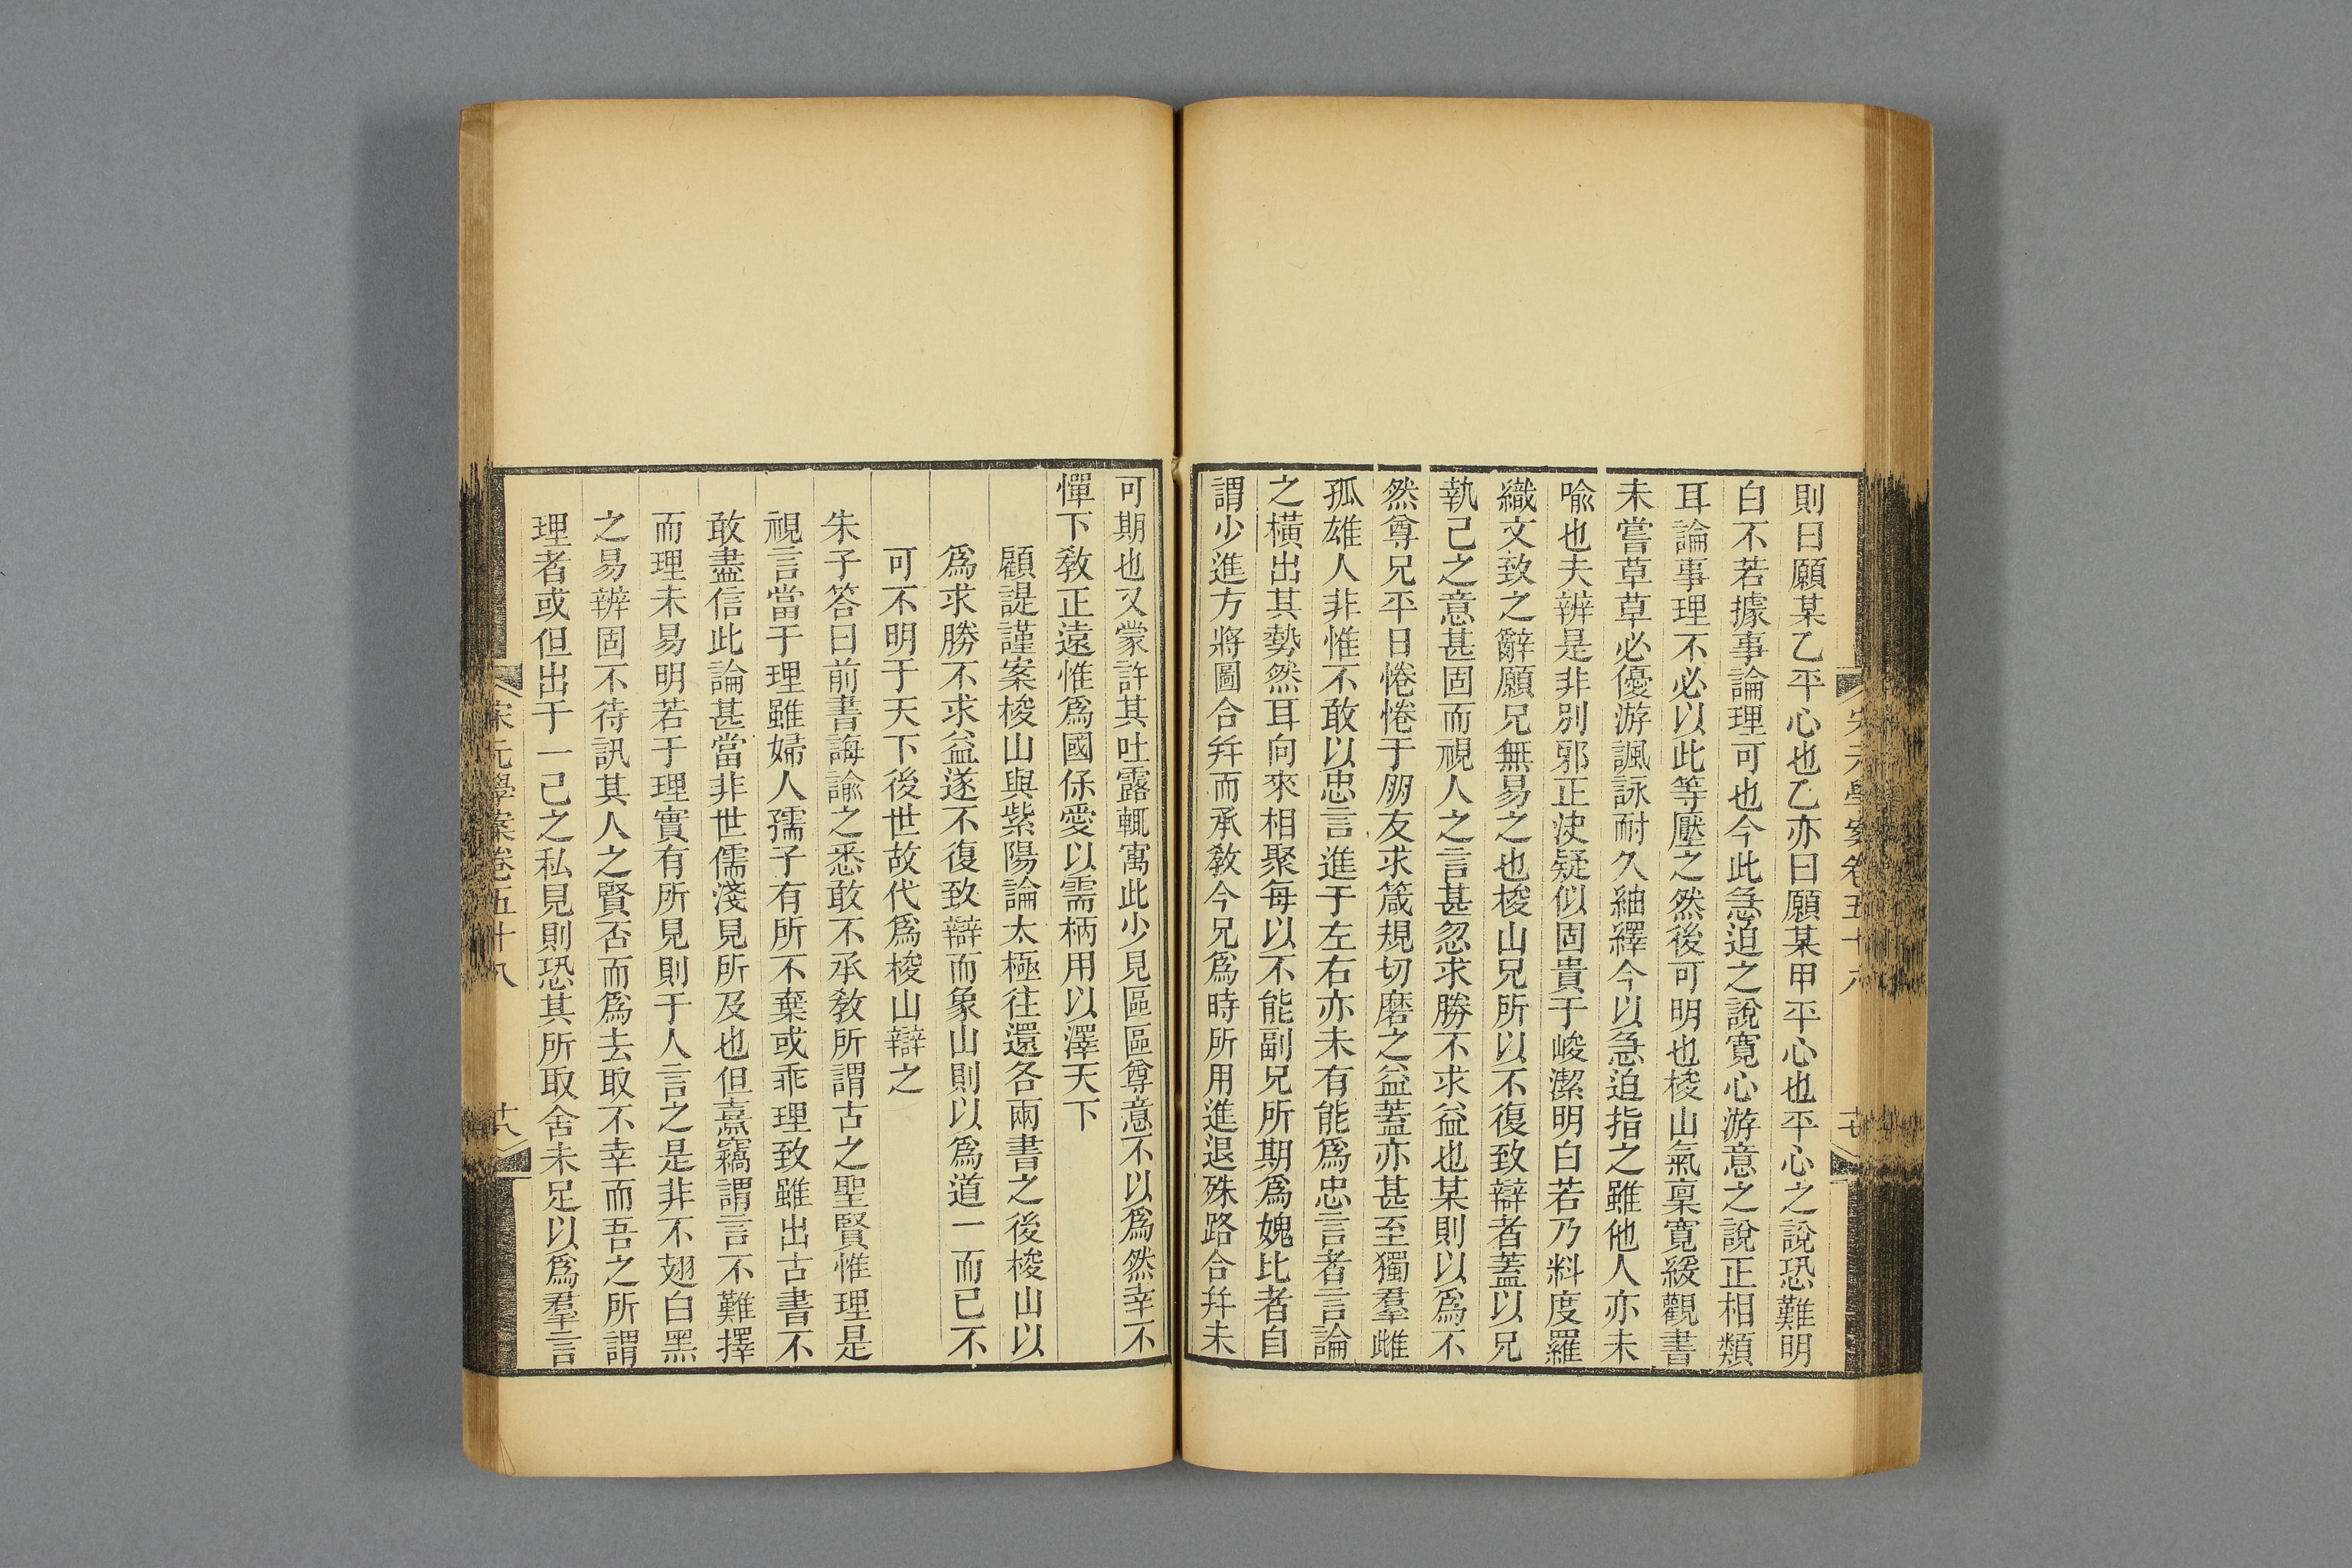 則曰願某乙平心也乙亦曰願某甲平心也平心之說恐難明
白不若據事論理可也今此急迫之說寬心游意之說正相類
耳論事理不必以此等壓之然後可明也梭山氣稟寬緩觀書
未嘗草草必優游諷詠耐久紬繹今以急迫指之雖他人亦未
喻也夫辨是非別邪正決疑似固貴于峻潔明白若乃料度羅
織文致之辭願兄無易之也梭山兄所以不復致辯者蓋以兄
執己之意甚固而視人之言甚忽求勝不求益也某則以爲不
然尊兄平日惓惓于朋友求箴規切磨之益蓋亦甚至獨羣雌
孤雄人非惟不敢以忠言進于左右亦未有能爲忠言者言論
之橫出其勢然耳向來相聚每以不能副兄所期爲媿比者自
謂少進方將圖合幷而承敎今兄爲時所用進退殊路合幷未
可期也又蒙許其吐露輒寓此少見區區尊意不以爲然幸不
憚下敎正遠惟爲國保愛以需柄用以澤天下
顧諟謹案梭山與紫陽論太極往還各兩書之後梭山以
爲求勝不求益遂不復致辯而象山則以爲道一而已不
可不明于天下後世故代爲梭山辯之
朱子答曰前書誨諭之悉敢不承敎所謂古之聖賢惟理是
視言當于理雖婦人孺子有所不棄或乖理致雖出古書不
敢盡信此論甚當非世儒淺見所及也但熹竊謂言不難擇
而理未易明若于理實有所見則于人言之是非不翅白黑
之易辨固不待訊其人之賢否而爲去取不幸而吾之所謂
理者或但出于一己之私見則恐其所取舍未足以爲羣言
宋元學案卷五十八
廿八